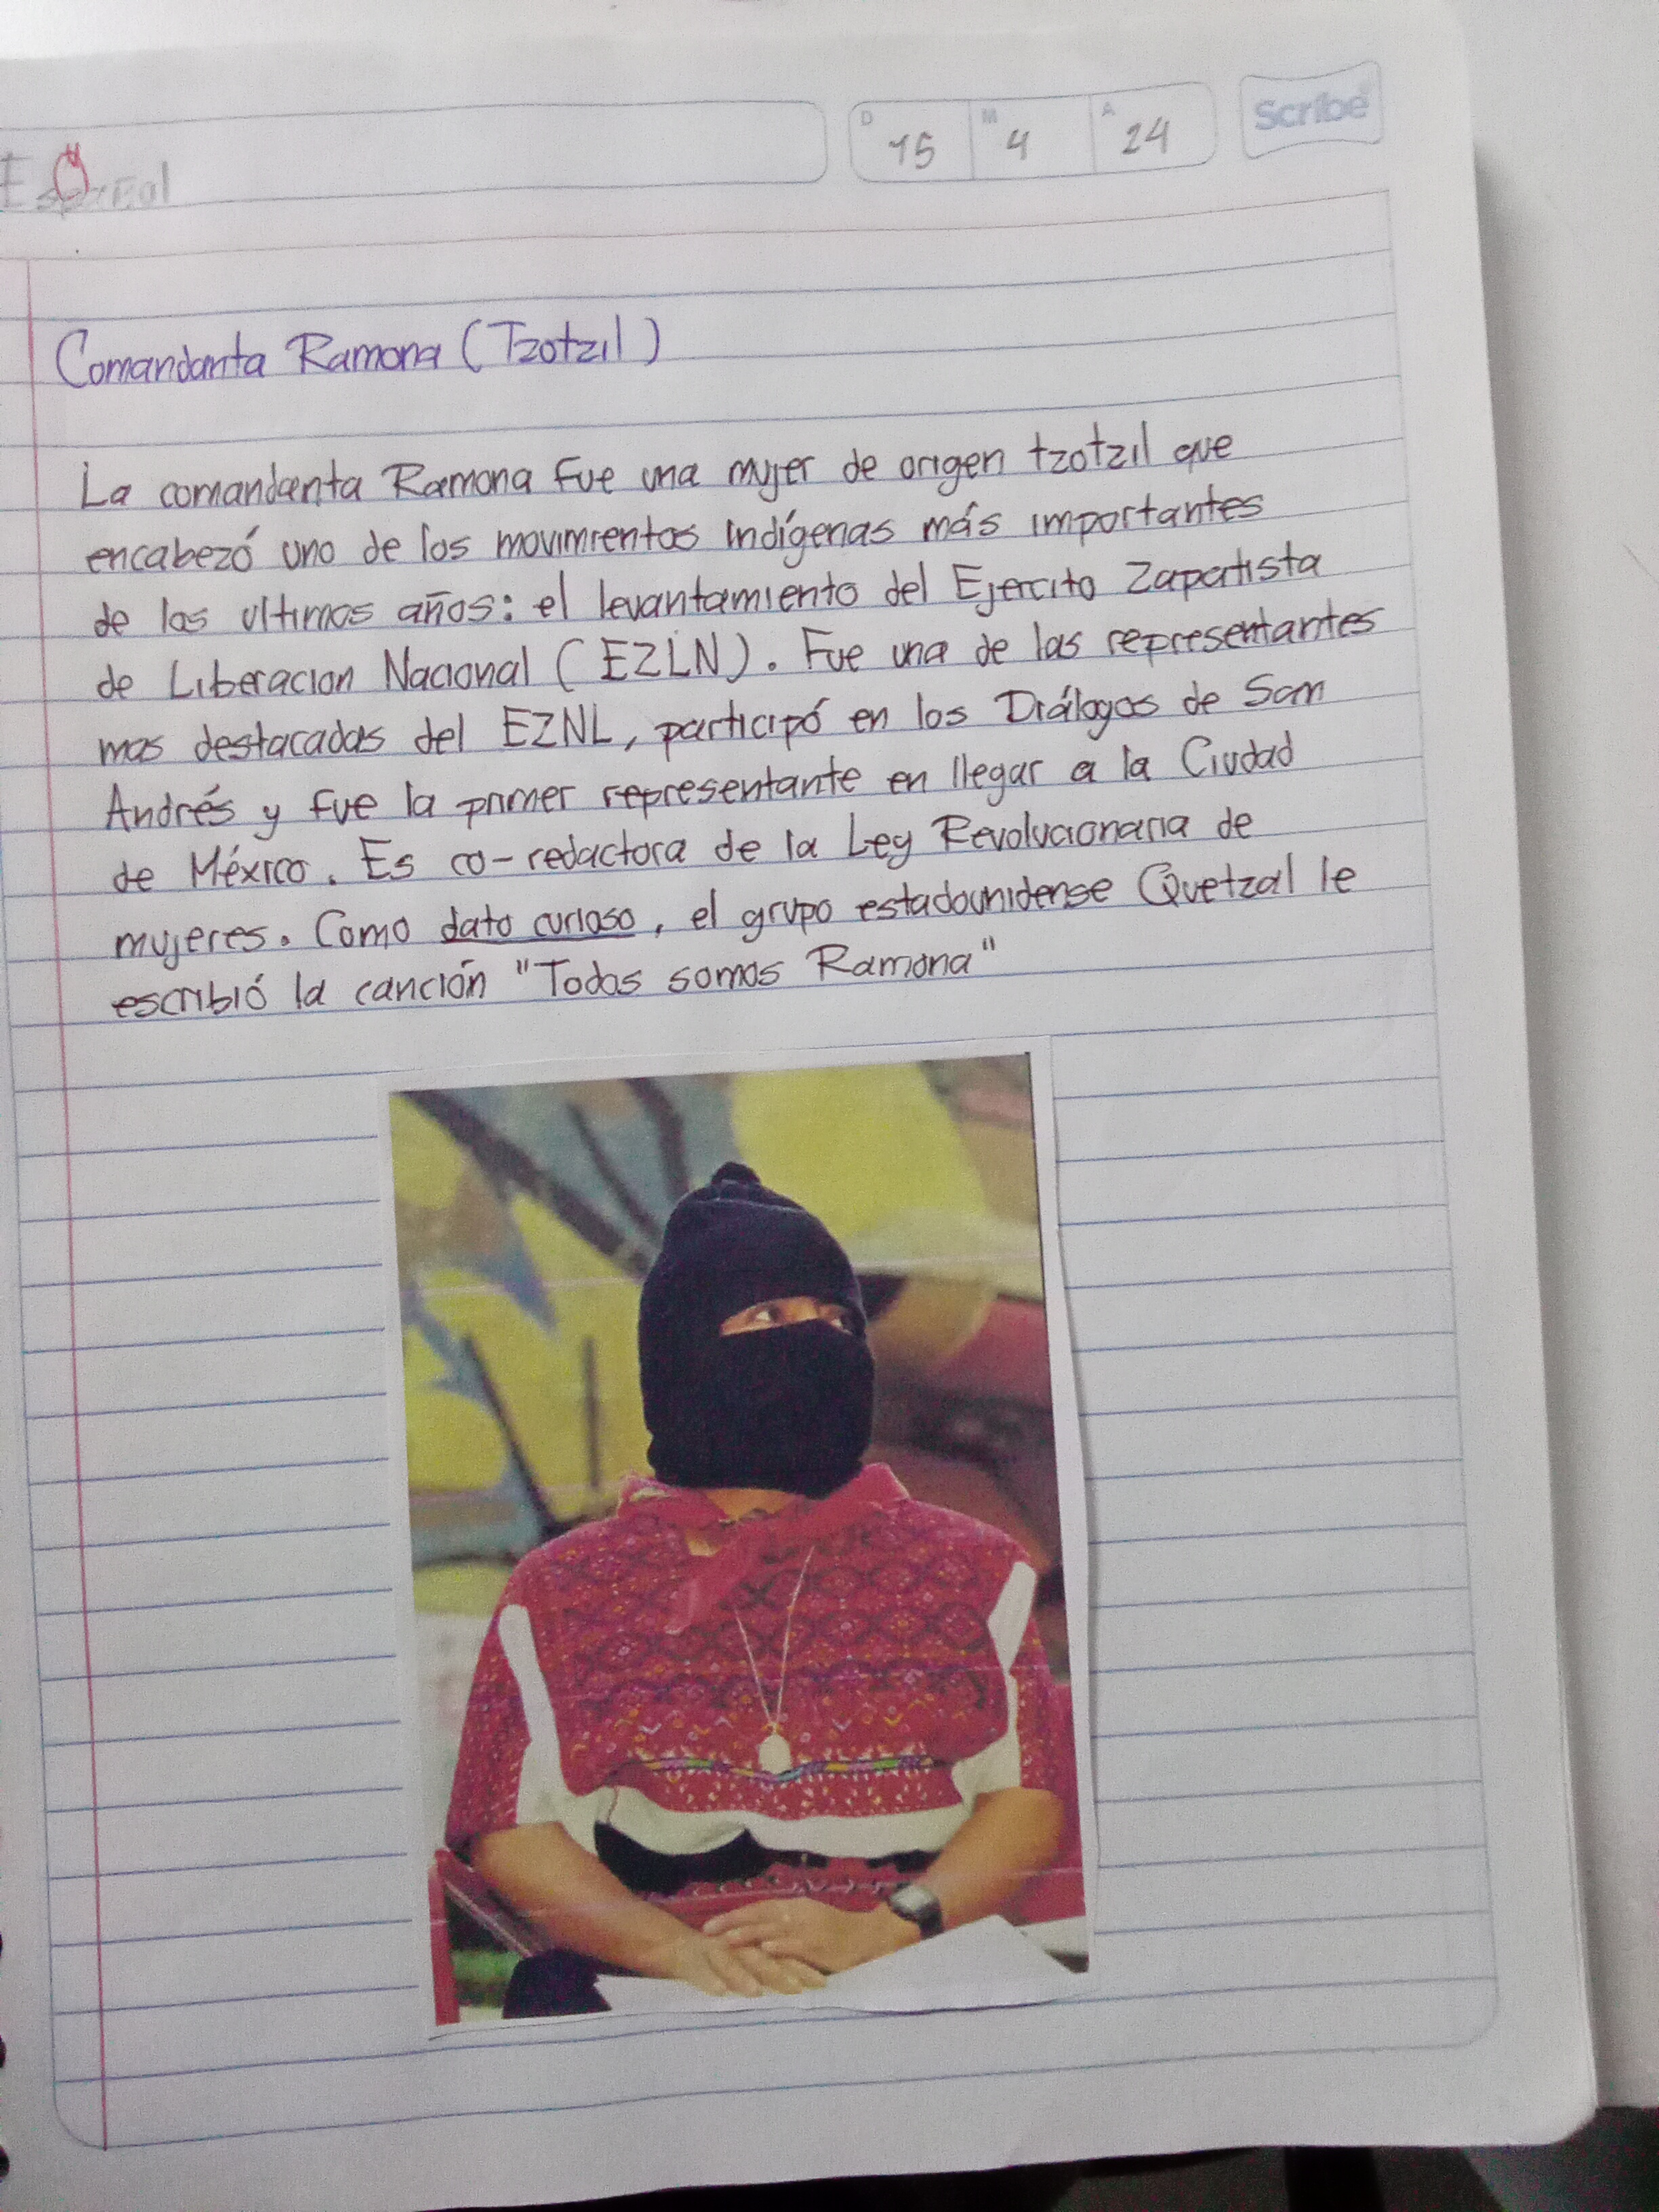 D 15 M 4 A 24 Scribe
Español
Comandanta Ramona (Tzotzil)
La comandanta Ramona fue una mujer de origen tzotzil que
encabezó uno de los movimientos indígenas más importantes
de los ultimos años: el levantamiento del Ejercito Zapatista
de Liberacion Nacional (EZLN). Fue una de las representantes
mas destacadas del EZNL, participó en los Diálogos de San
Andrés y fue la primer representante en llegar a la Ciudad
de México. Es co-redactora de la Ley Revolucionaria de
mujeres. Como dato curioso, el grupo estadounidense Quetzal le
escribió la canción "Todos somos Ramona"